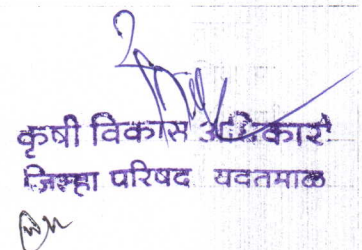 कृषी विकास अधिकारी
जिल्हा परिषद यवतमाळ